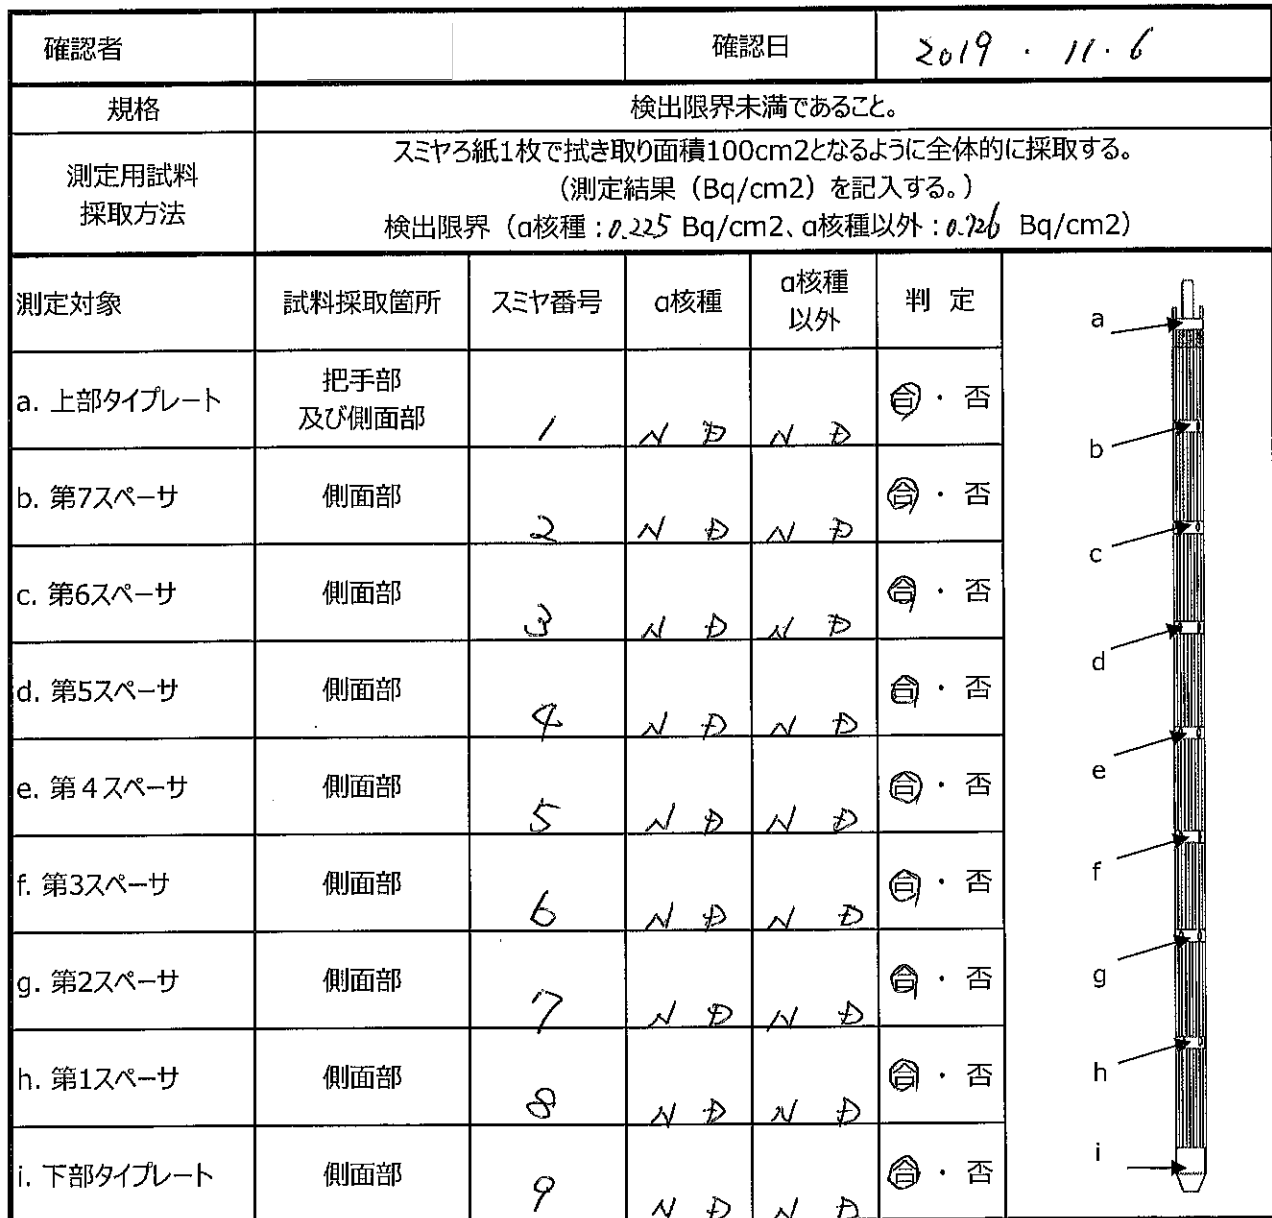 確認者 確認日 2019 ・ 11・6
規格 検出限界未満であること。
測定用試料
採取方法
スミヤろ紙1枚で拭き取り面積100cm2となるように全体的に採取する。
(測定結果(Bq/cm2)を記入する。)
検出限界(α核種:0.225 Bq/cm2、α核種以外:0.726 Bq/cm2)
測定対象 試料採取箇所 スミヤ番号 α核種 α核種以外 判 定
a. 上部タイプレート 把手部及び側面部 1 N D N D 合・否
b. 第7スペーサ 側面部 2 N D N D 合・否
c. 第6スペーサ 側面部 3 N D N D 合・否
d. 第5スペーサ 側面部 4 N D N D 合・否
e. 第4スペーサ 側面部 5 N D N D 合・否
f. 第3スペーサ 側面部 6 N D N D 合・否
g. 第2スペーサ 側面部 7 N D N D 合・否
h. 第1スペーサ 側面部 8 N D N D 合・否
i. 下部タイプレート 側面部 9 N D N D 合・否
a
b
c
d
e
f
g
h
i